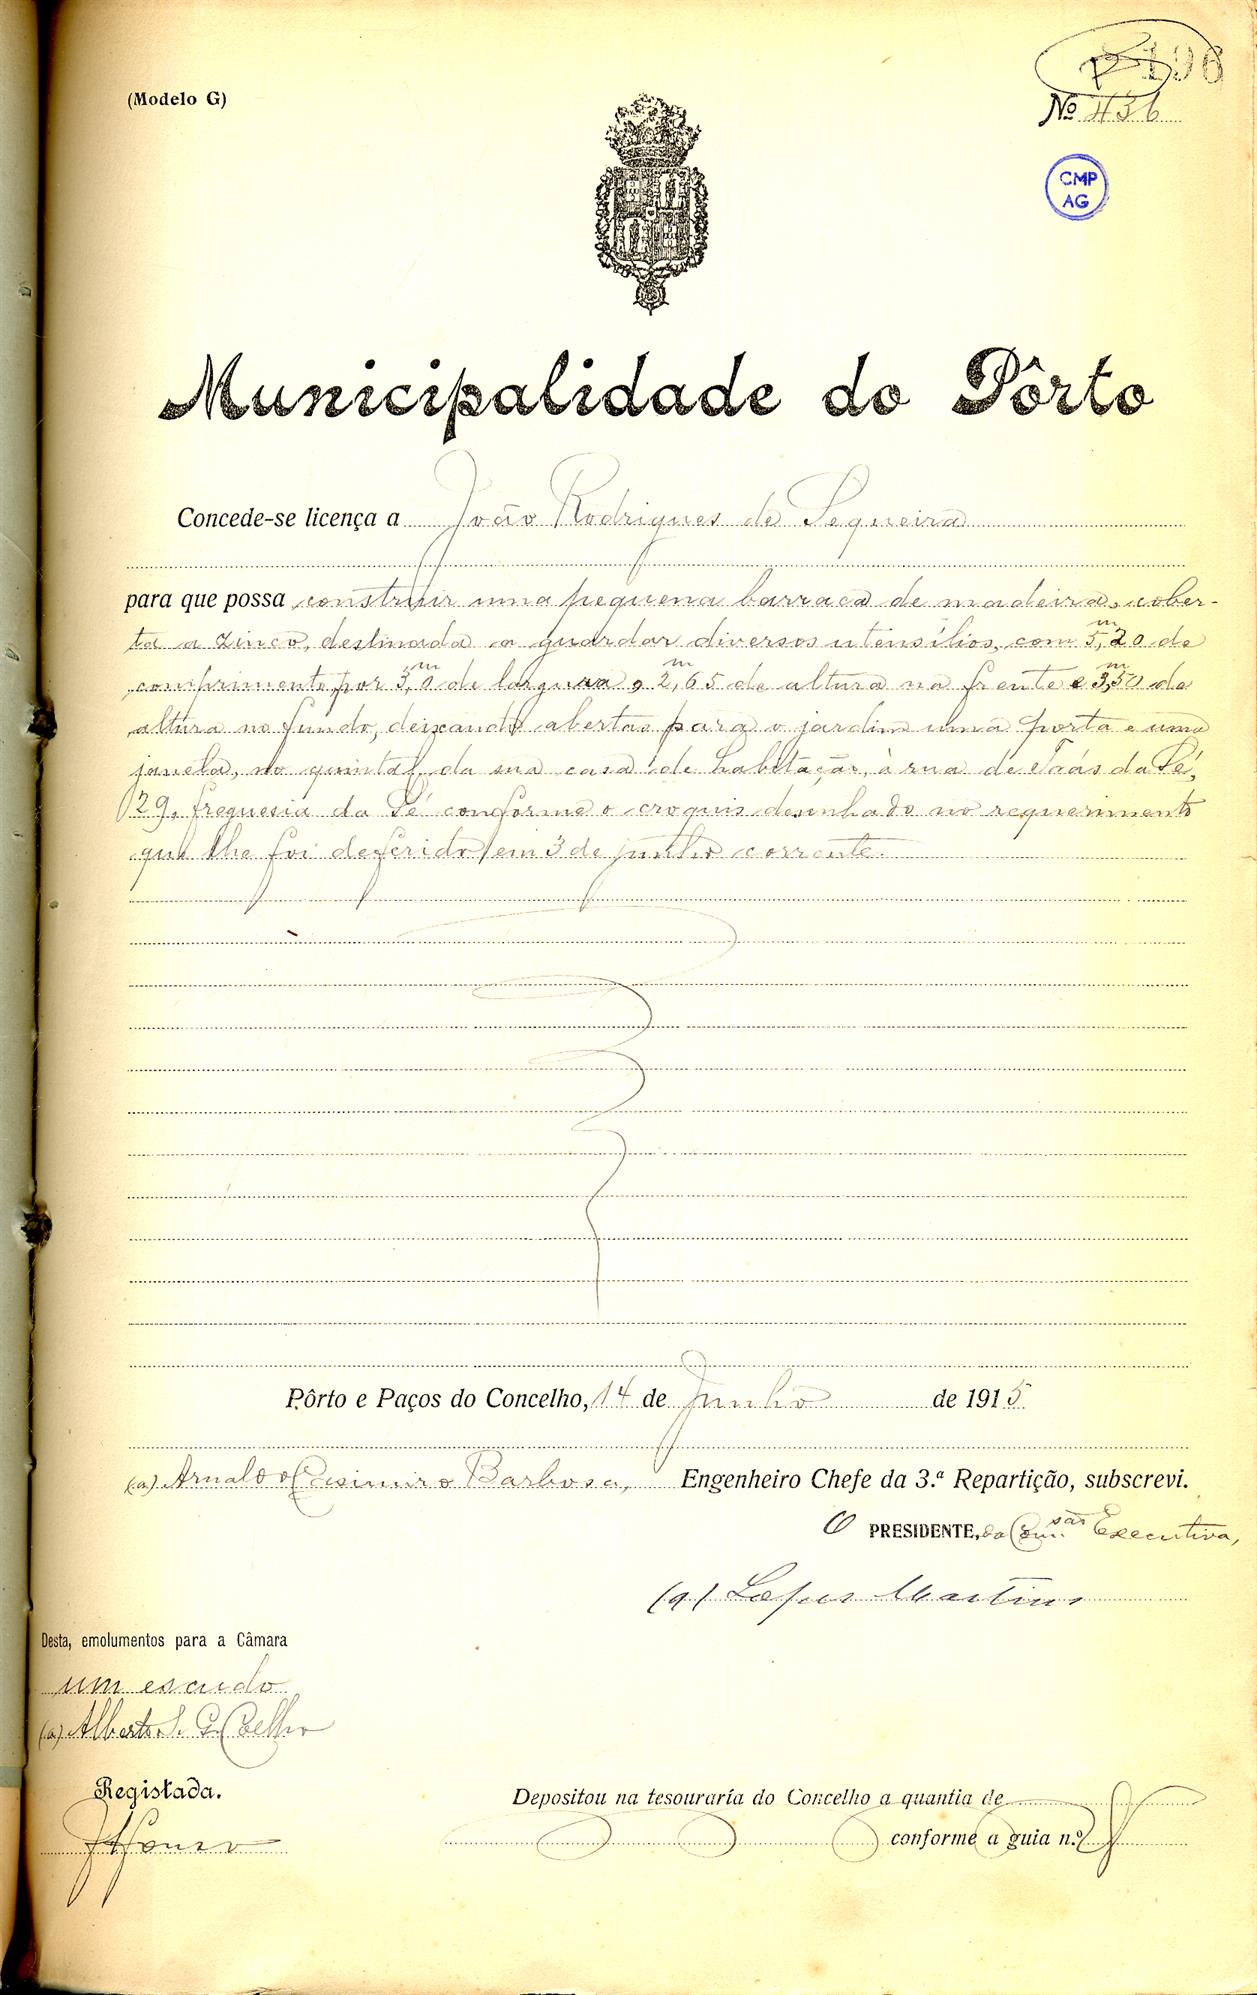 196
(Modelo G)
Nº 436
CMP
AG
Municipalidade do Pôrto
Concede-se licença a João Rodrigues de Sequeira
para que possa construir uma pequena barraca de madeira, cober-
ta a zinco, destinada a guardar diversos utensílios, com 5,m20 de
comprimento, por 3,m0 de largura, 2,m65 de altura na frente e 3,m50 de
altura no fundo, deixando abertas para o jardim uma porta e uma
janela, no quintal da sua casa de habitação, à rua de Trás da Sé,
29, freguesia da Sé conforme o croquis desenhado no requerimento
que lhe foi deferido em 3 de junho corrente.
Pôrto e Paços do Concelho, 14 de Junho de 1915
(a) Arnaldo Casimiro Barbosa, Engenheiro Chefe da 3.ª Repartição, subscrevi.
O PRESIDENTE, da Com.são Executiva,
(a) Lopes Martins
Desta, emolumentos para a Câmara
um escudo
(a) Alberto S. G. Coelho
Registada.
Depositou na tesouraría do Concelho a quantia de
conforme a guia n.º